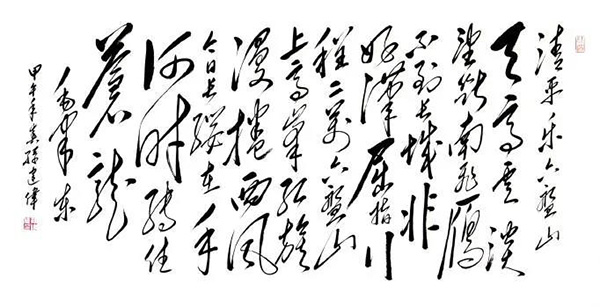 清平乐六盘山
天高雲淡
望断南飛雁
不到长城非
好漢屈指行
程二萬六盘山
上高峯红旗
漫捲西风
今日长缨在手
何时缚住
蒼龙
毛泽东
甲午年孫建偉